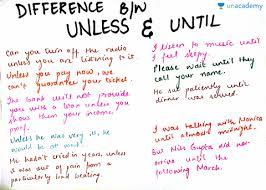 DIFFERENCE B/W
unacademy
UNLESS & UNTIL
Can you turn off the radio
unless you are listening to it
Unless you pay now, we
can't guarantee your ticket.
The bank will not provide
you with a loan unless you
show them your income
proof.
Unless he was very ill, he
would be at work.
He hadn't cried in years, unless
it was out of pain from a
particularly bad beating.
I listen to music until
I feel sleepy.
Please wait until they
call your name.
He sat patiently until
dinner was served.
I was talking with Monica
until almost midnight.
But Miss Gupta did not
arrive until the
following March.